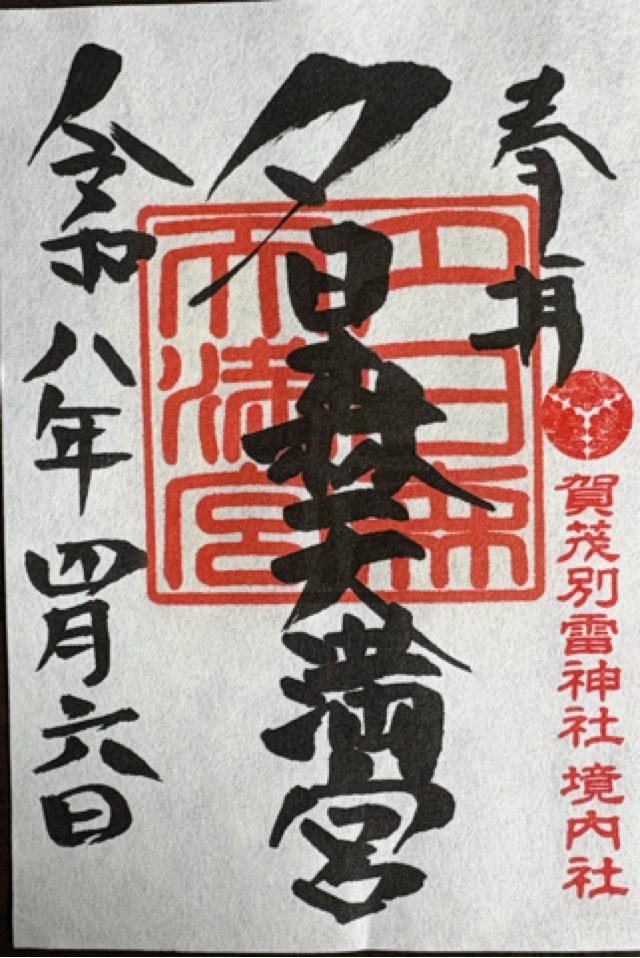 奉拝
賀茂別雷神社 境内社
夕日森天満宮
夕日森
天満宮
令和八年四月六日